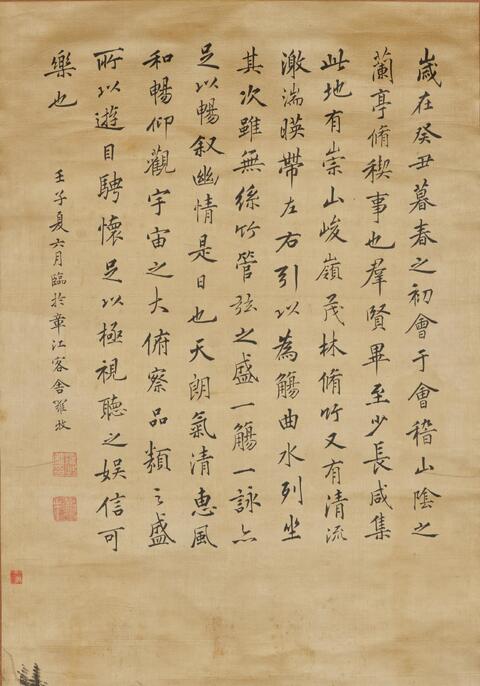 歲在癸丑暮春之初會于會稽山陰之
蘭亭脩稧事也羣賢畢至少長咸集
此地有崇山峻嶺茂林脩竹又有清流
激湍暎帶左右引以為觴曲水列坐
其次雖無絲竹管弦之盛一觴一詠亦
足以暢叙幽情是日也天朗氣清惠風
和暢仰觀宇宙之大俯察品類之盛
所以遊目騁懷足以極視聽之娛信可
樂也
壬子夏六月臨於章江客舍羅牧